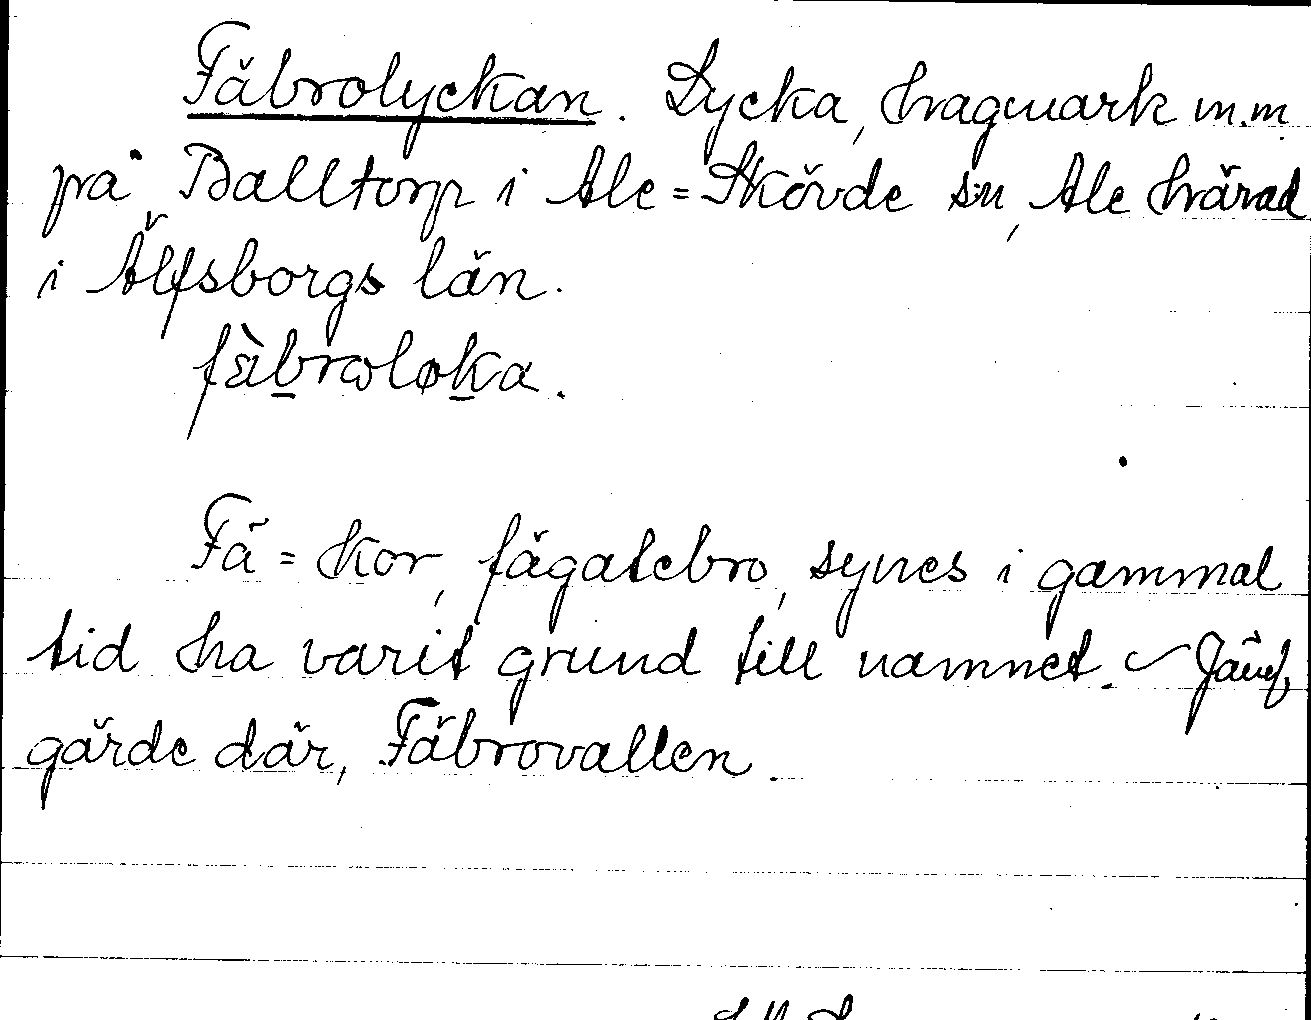 Fäbrolyckan. Lycka, hagmark m.m
på Balltorp i Ale=Skövde sn, Ale härad
i Älfsborgs län.
fä̀broloka.
Fä = kor, fägatebro, synes i gammal
tid ha varit grund till namnet. ~ Jämf.
gärde där, Fäbrovallen.